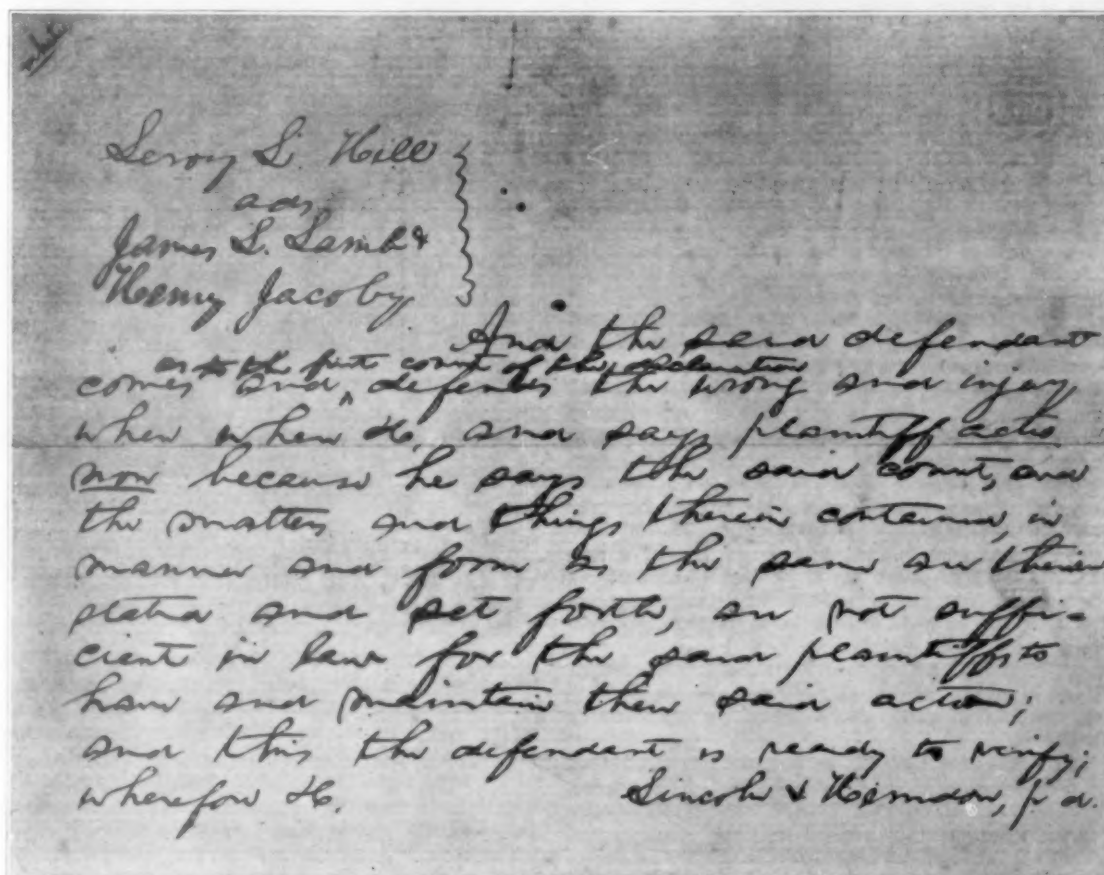 Leroy L. Hill
ads
James L. Lamb &
Henry Jacoby
And the said defendant
as to the first count of the declaration
comes and ^ defends the wrong and injury,
when & where &c. and says plaintiff actio
non because he says the said count, and
the matters and things therein contained, in
manner and form as the same are therein
stated and set forth, are not suffi-
cient in law for the said plaintiffs to
have and maintain their said action;
and this the defendant is ready to verify;
wherefore &c.
Lincoln & Herndon, p. d.